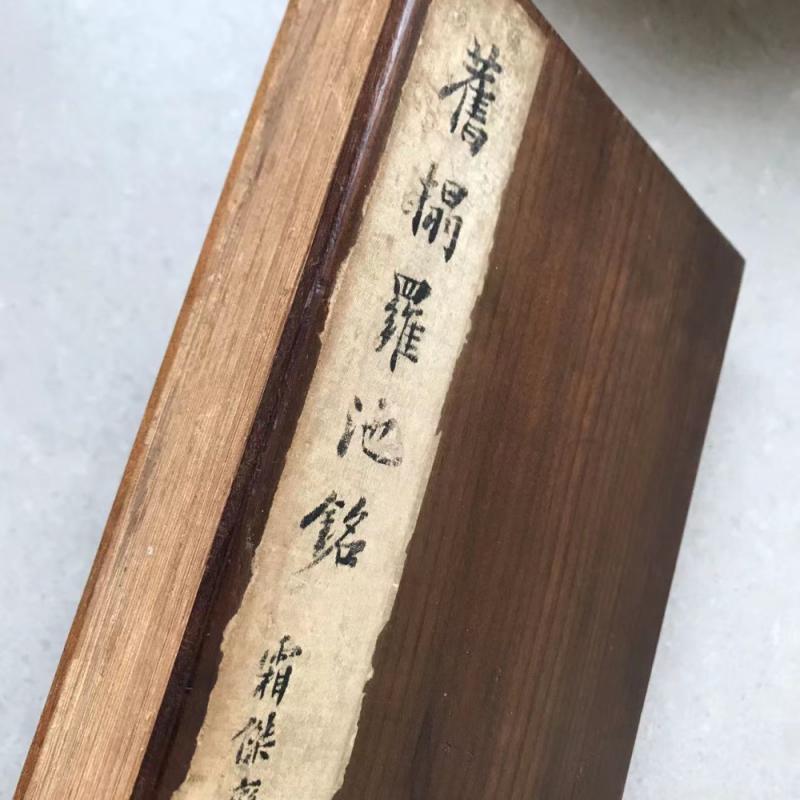 舊榻羅池銘
霜傑